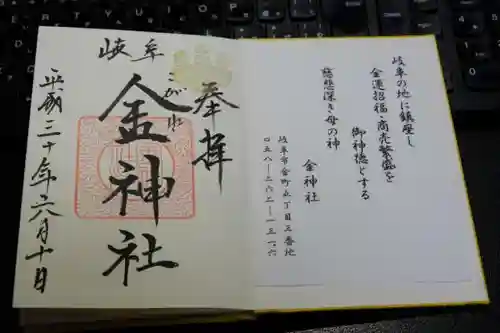 奉拝
岐阜
金神社
こがね
平成三十年六月十日
岐阜の地に鎮座し
金運招福・商売繁盛を
御神徳とする
慈悲深き母の神
金神社
岐阜市金町五丁目三番地
〇五八ー二六二ー一三一六